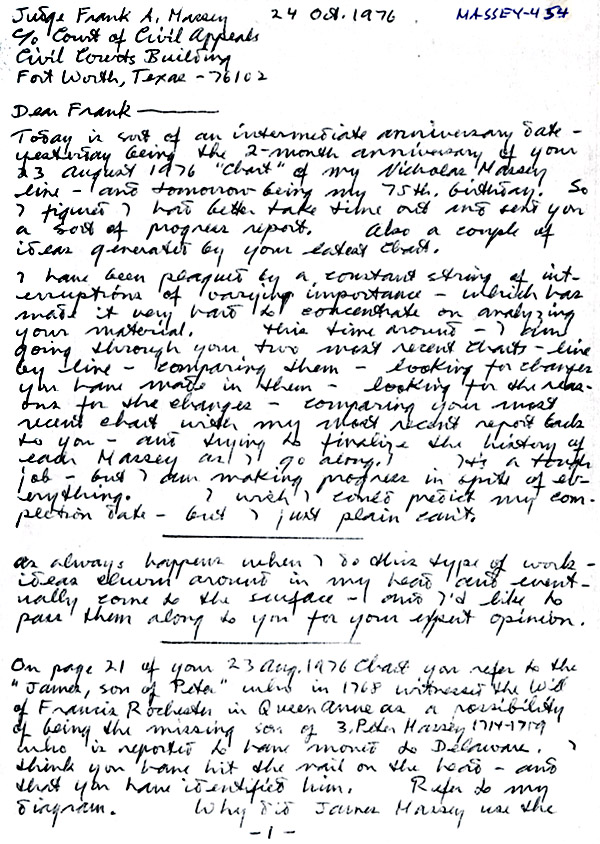 Judge Frank A. Massey 24 Oct. 1976 MASSEY-454
c/o Court of Civil Appeals
Civil Courts Building
Fort Worth, Texas - 76102
Dear Frank ———
Today is sort of an intermediate anniversary date -
yesterday being the 2-month anniversary of your
23 August 1976 "Chart" of my Nicholas Massey
line - and tomorrow being my 75th. birthday. So
I figured I had better take time out and send you
a sort of progress report. Also a couple of
ideas generated by your latest chart.
I have been plagued by a constant string of int-
erruptions of varying importance - which has
made it very hard to concentrate on analyzing
your material. This time around - I am
going through your two most recent charts - line
by line - comparing them - looking for changes
you have made in them - looking for the reas-
ons for the changes - comparing your most
recent chart with my most recent report back
to you - and trying to finalize the history of
each Massey as I go along. It's a tough
job - but I am making progress in spite of ev-
erything. I wish I could predict my com-
pletion date - but I just plain can't.
As always happens when I do this type of work -
ideas churn around in my head and event-
ually come to the surface - and I'd like to
pass them along to you for your expert opinion.
On page 21 of your 23 Aug. 1976 Chart you refer to the
"James, son of Peter" who in 1768 witnessed the Will
of Francis Rochester in Queen Anne as a possibility
of being the missing son of 3, Peter Massey 1714-1759
who is reported to have moved to Delaware. I
think you have hit the nail on the head - and
that you have identified him. Refer to my
diagram. Why did James Massey use the
- 1 -